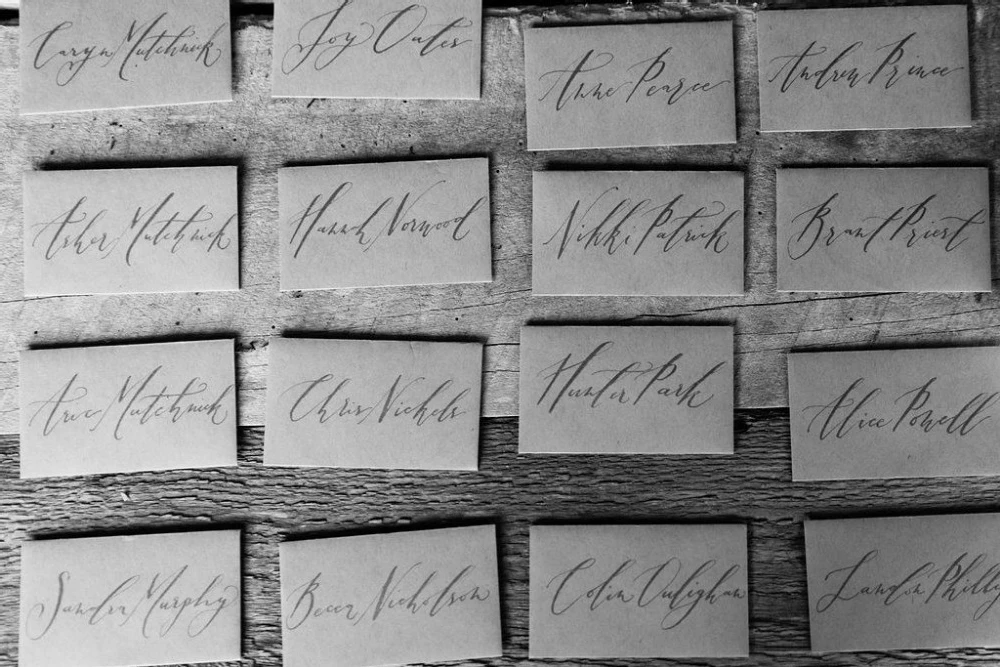 Caryn Mutchnick
Joy Oates
Anne Pearce
Andrew Prince
Asher Mutchnick
Hannah Norwood
Nikki Patrick
Brant Priest
Mutchnick
Chris Nichols
Hunter Park
Alice Powell
Sandra Murphy
Becca Nicholson
Colin
Landon Philly